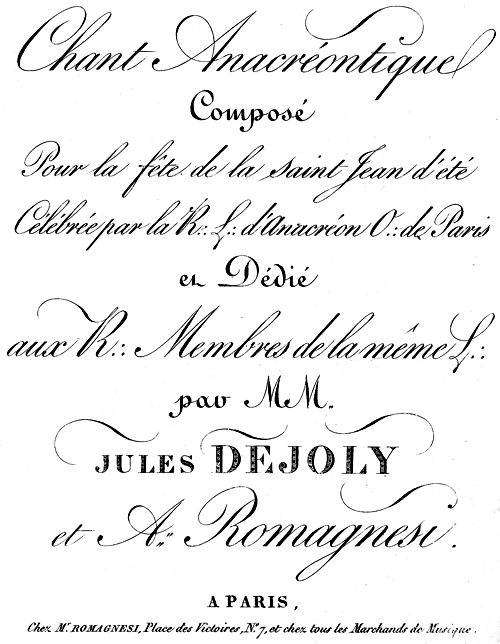 Chant Anacréontique
Composé
Pour la fête de la saint Jean d'été
Célébrée par la R∴ L∴ d'Anacréon O∴ de Paris
et Dédié
aux R∴ Membres de la même L∴
par MM.
JULES DEJOLY
et A.. Romagnesi.
A PARIS,
Chez Mr. ROMAGNESI, Place des Victoires, No. 7, et chez tous les Marchands de Musique.